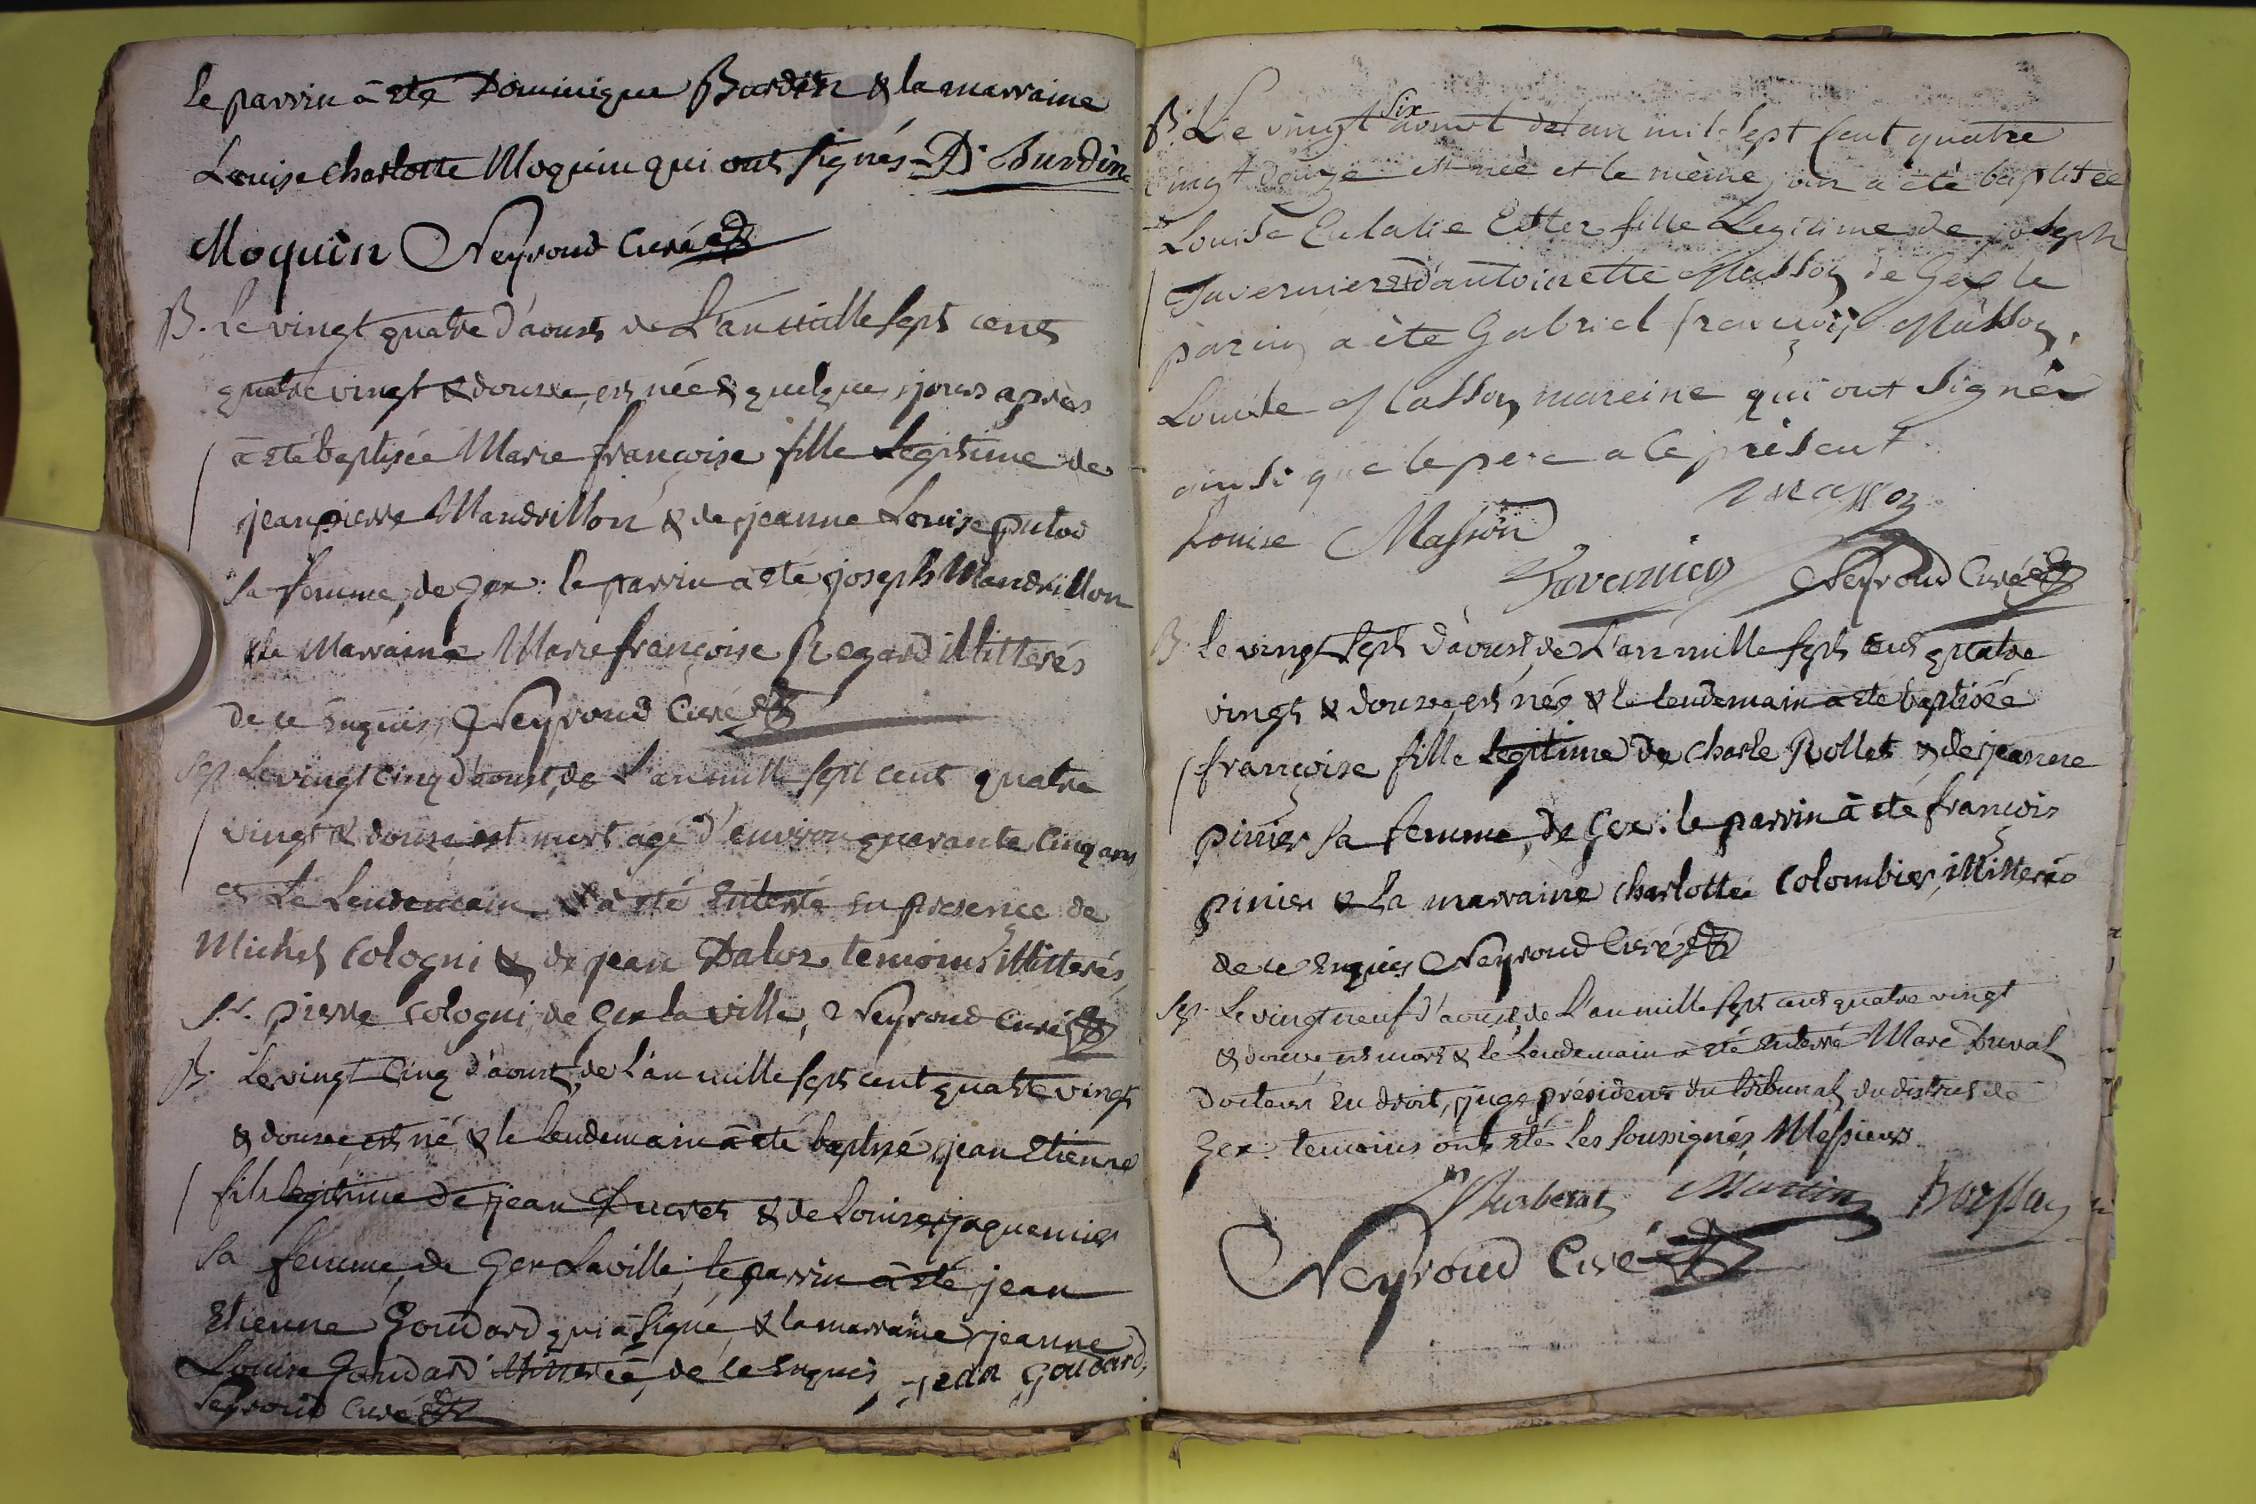 le parrin à été Dominique Burdin & la marraine
Louise Charlotte Moquin qui ont signés - D. Burdin
Moquin Neyroud Curé
B. Le vingt quatre d'aoust de L'an mille sept cent
quatre vingt & douze, est née & quelque jours après
à été baptisée Marie françoise fille Legitime de
jean pierre Mandrillon & de jeanne Louise putod
sa femme, de Gex: le parrin à été joseph Mandrillon
& la Marraine Marie françoise Regard illitterés
de ce Enquis, Neyroud Curé
Sep. Le vingt cinq d'aoust, de L'an mille sept cent quatre
vingt & douze est mort agé d'environ quarante cinq ans
et Le Lendemain & à été Enterré en presence de
Michel Cologni & de jean Daloz temoins illitterés,
Sr. pierre Cologni, de Gex la ville, Neyroud Curé
B. Le vingt cinq d'aoust, de L'an mille sept cent quatre vingt
& douze, est né & le Lendemain à été baptisé jean Etienne
fils legitime de jean Ducret & de Louise jaquemier
sa femme, de Gex Laville, le parrin à été jean
Etienne Goudard qui à signé & la marraine jeanne
Louise Goudard illitterée, de ce Enquis, jean Goudard,
Neyroud Curé
B. Le vingt six aoust de lan mil sept Cent quatre
vingt douze est née et le même jour a été baptisée
Louise Eulalie Ester fille Legitime de joseph
Tavernier & d'antoinette Masson de Gex le
parin a été Gabriel françois Masson,
Louise Masson mareine qui ont signér
ainsi que le pere a ce présent.
Masson
Louise Masson
Tavernier Neyroud Curé
B. le vingt sept d'aoust, de L'an mille sept cent quatre
vingt & douze, est née & le lendemain a été baptisée
françoise fille legitime de Charle Rollet & de jeanne
pinier sa femme, de Gex: le parrin à été françois
pinier & La marraine Charlotte Colombier, illitterés
de ce Enquis Neyroud Curé
Sep. Le vingt neuf d'aoust, de L'an mille sept cent quatre vingt
& douze, est mort & le Lendemain à été Enterré Marc Duval
docteur En droit, juge président du tribunal du district de
Gex: temoins ont été Les soussignés Messieurs
Martin
Neyroud Curé